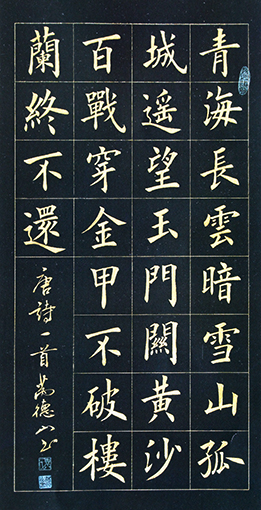 青海長雲暗雪山孤
城遥望玉門關黄沙
百戰穿金甲不破樓
蘭終不還
唐詩一首 德山书